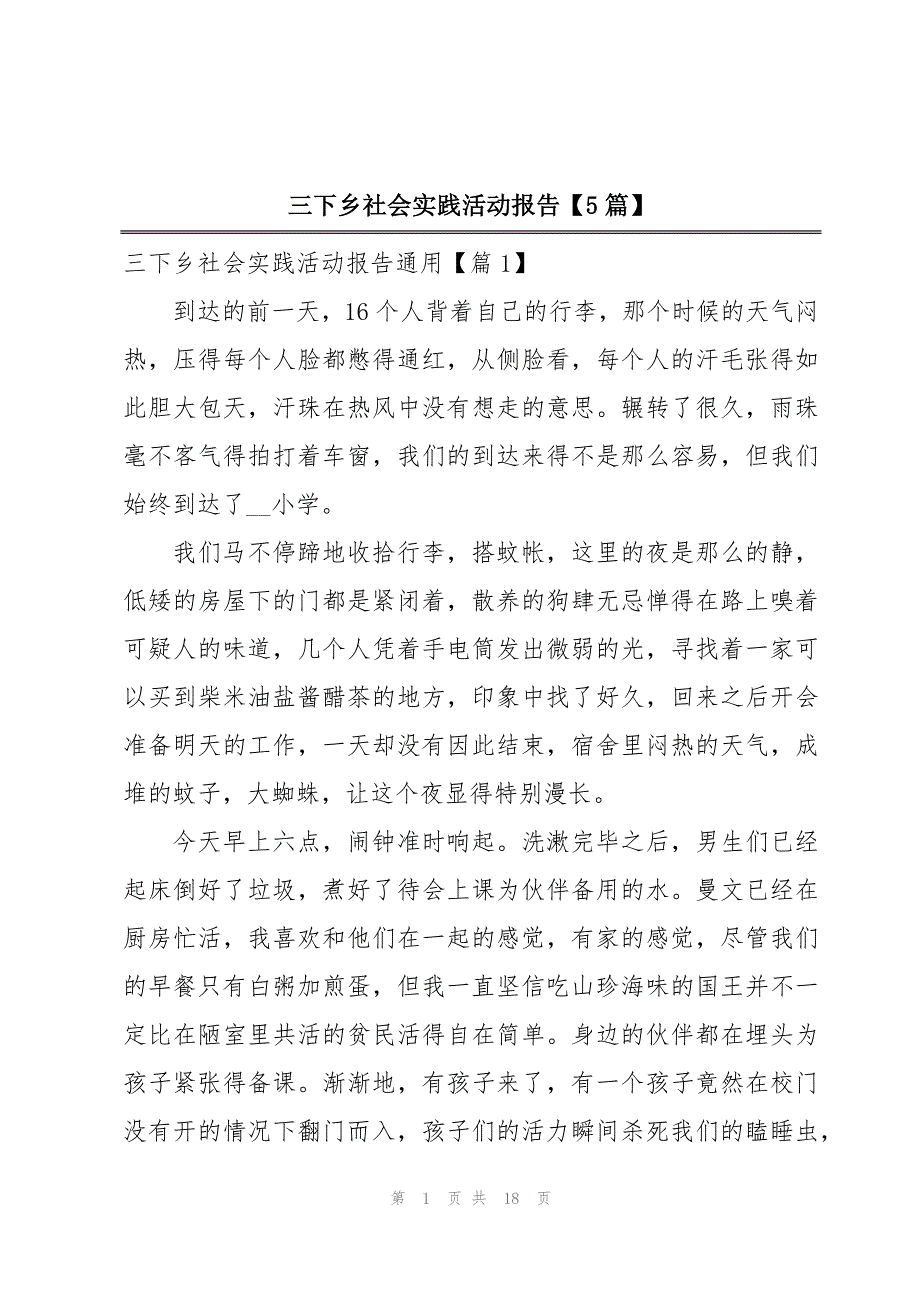 三下乡社会实践活动报告【5 篇】
三下乡社会实践活动报告通用【篇 1】
到达的前一天，16 个人背着自己的行李，那个时候的天气闷
热，压得每个人脸都憋得通红，从侧脸看，每个人的汗毛张得如
此胆大包天，汗珠在热风中没有想走的意思。辗转了很久，雨珠
毫不客气得拍打着车窗，我们的到达来得不是那么容易，但我们
始终到达了__小学。
我们马不停蹄地收拾行李，搭蚊帐，这里的夜是那么的静，
低矮的房屋下的门都是紧闭着，散养的狗肆无忌惮得在路上嗅着
可疑人的味道，几个人凭着手电筒发出微弱的光，寻找着一家可
以买到柴米油盐酱醋茶的地方，印象中找了好久，回来之后开会
准备明天的工作，一天却没有因此结束，宿舍里闷热的天气，成
堆的蚊子，大蜘蛛，让这个夜显得特别漫长。
今天早上六点，闹钟准时响起。洗漱完毕之后，男生们已经
起床倒好了垃圾，煮好了待会上课为伙伴备用的水。曼文已经在
厨房忙活，我喜欢和他们在一起的感觉，有家的感觉，尽管我们
的早餐只有白粥加煎蛋，但我一直坚信吃山珍海味的国王并不一
定比在陋室里共活的贫民活得自在简单。身边的伙伴都在埋头为
孩子紧张得备课。渐渐地，有孩子来了，有一个孩子竟然在校门
没有开的情况下翻门而入，孩子们的活力瞬间杀死我们的瞌睡虫，
第 1 页 共 18 页